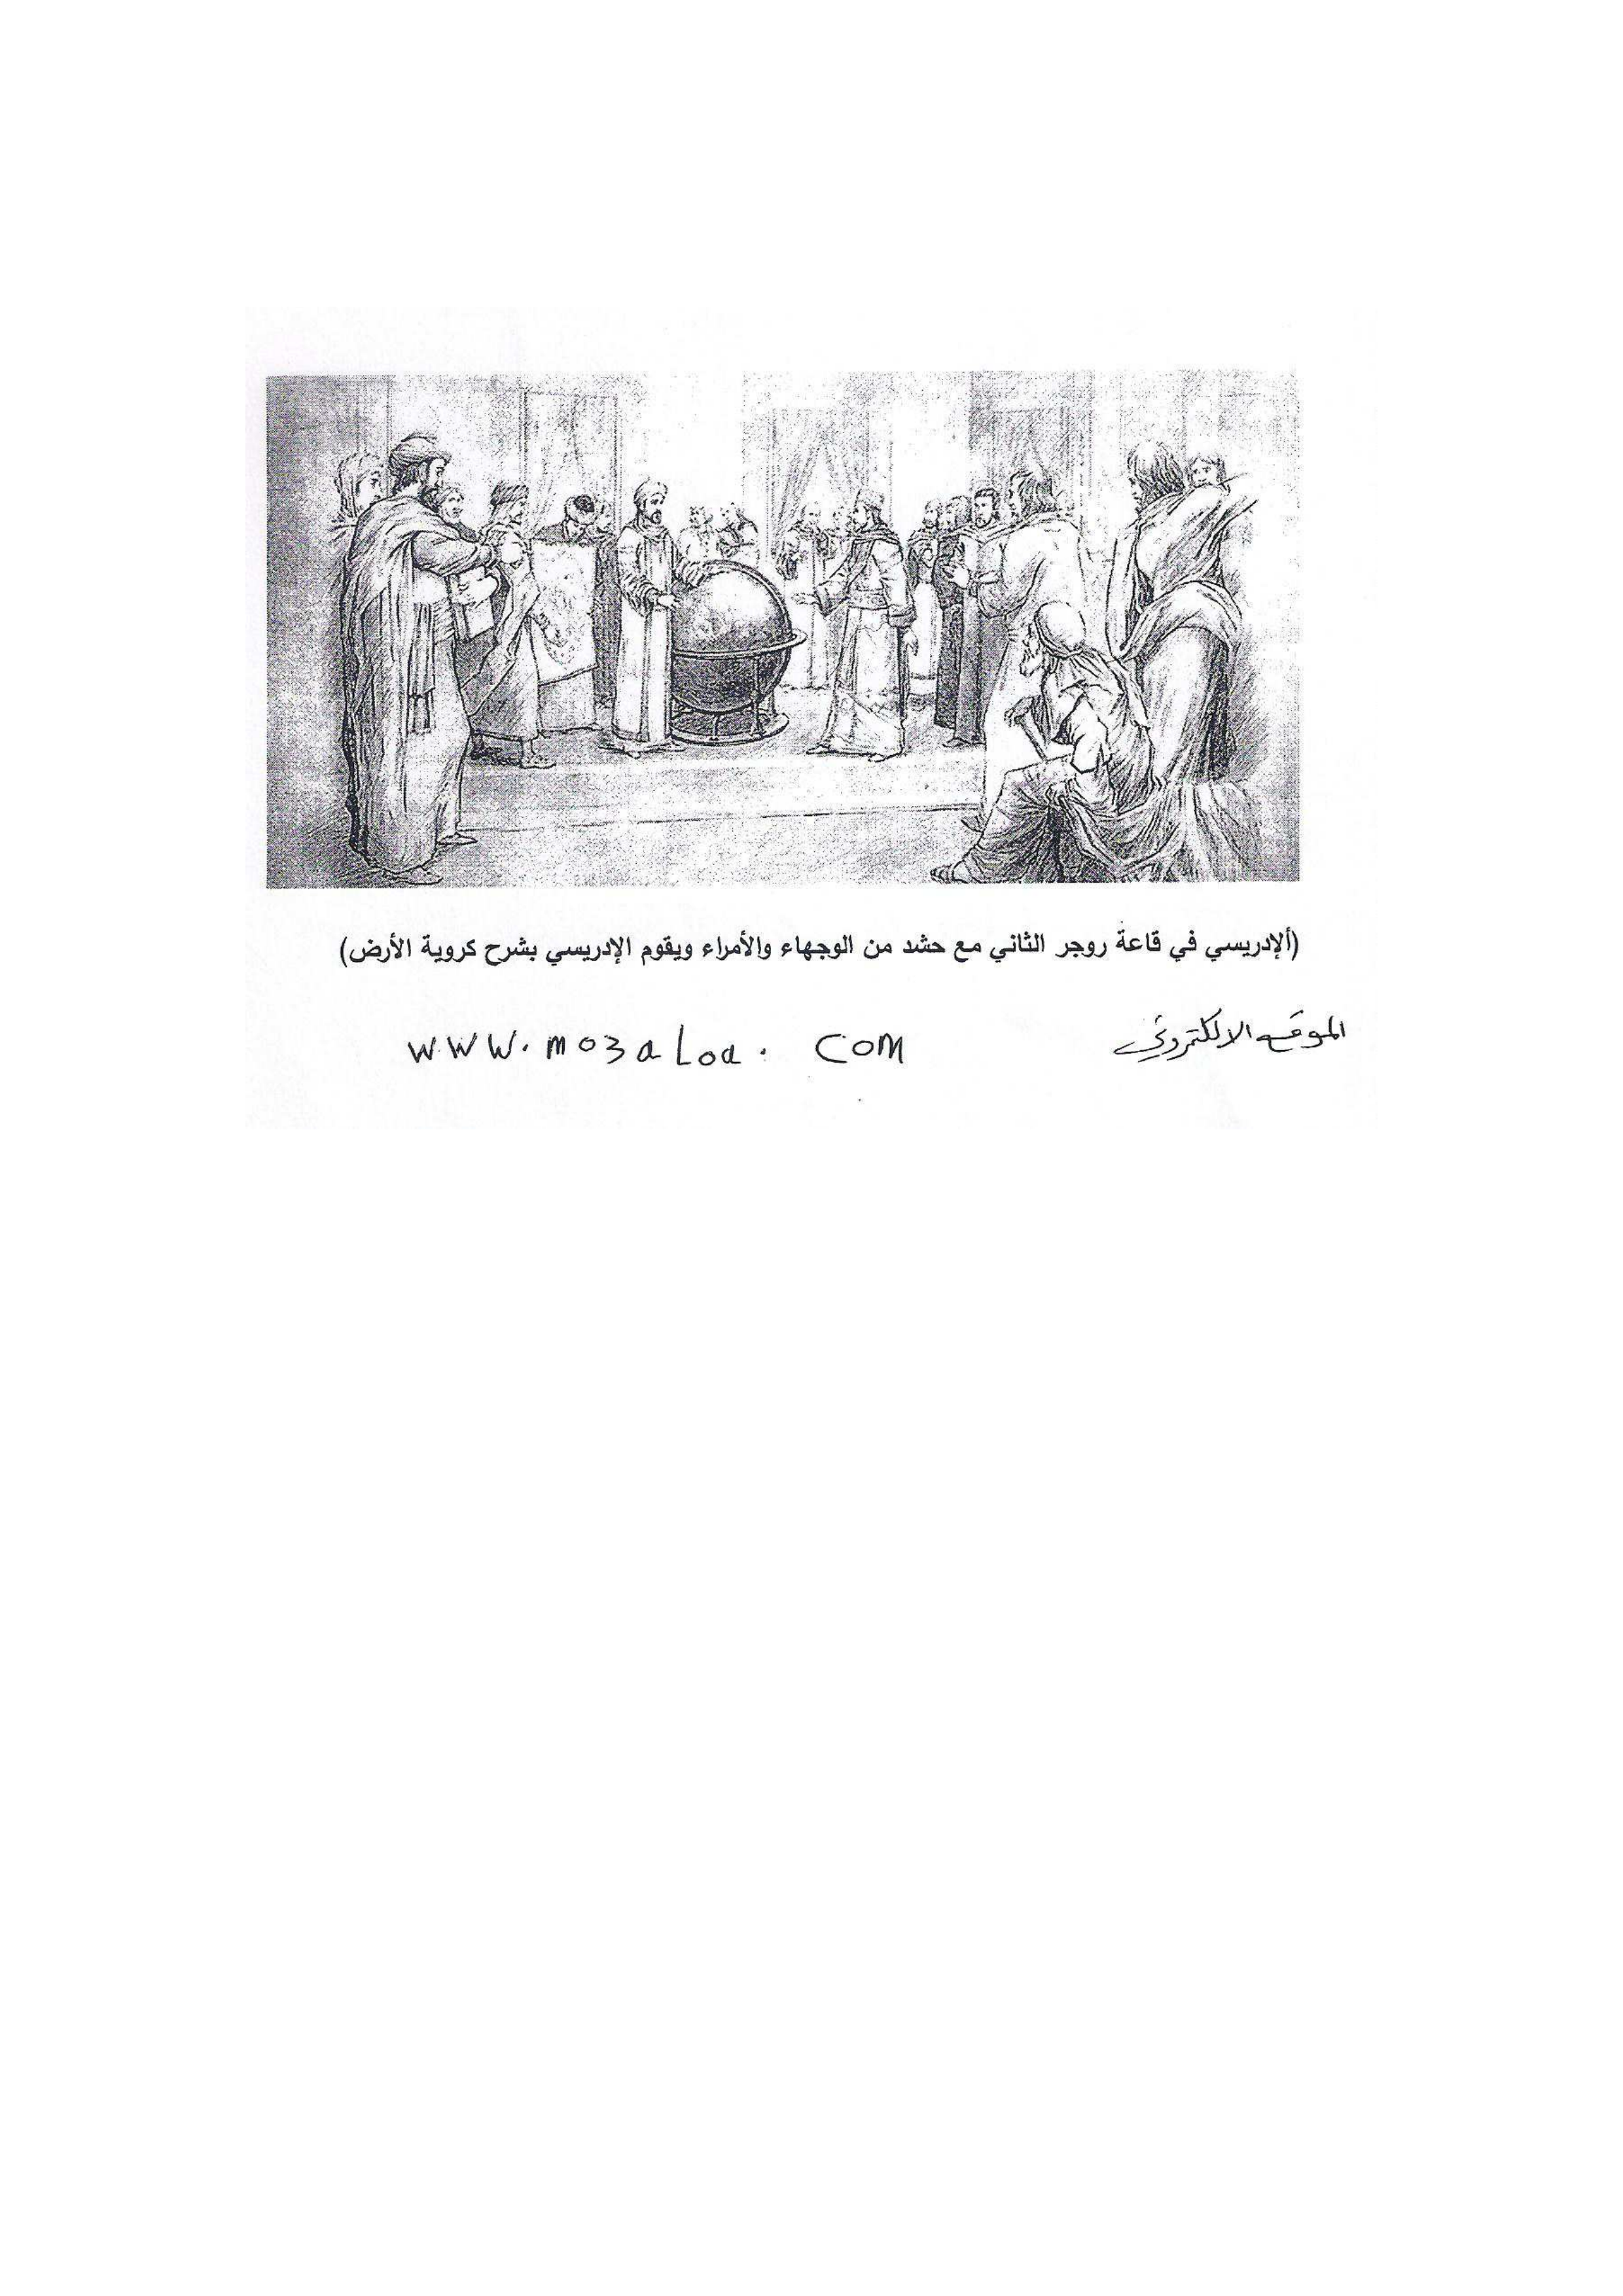 (ألإدريسي في قاعة روجر الثاني مع حشد من الوجهاء والأمراء ويقوم الإدريسي بشرح كروية الأرض)
الموقع الالكتروني www.mo3aLoa.com